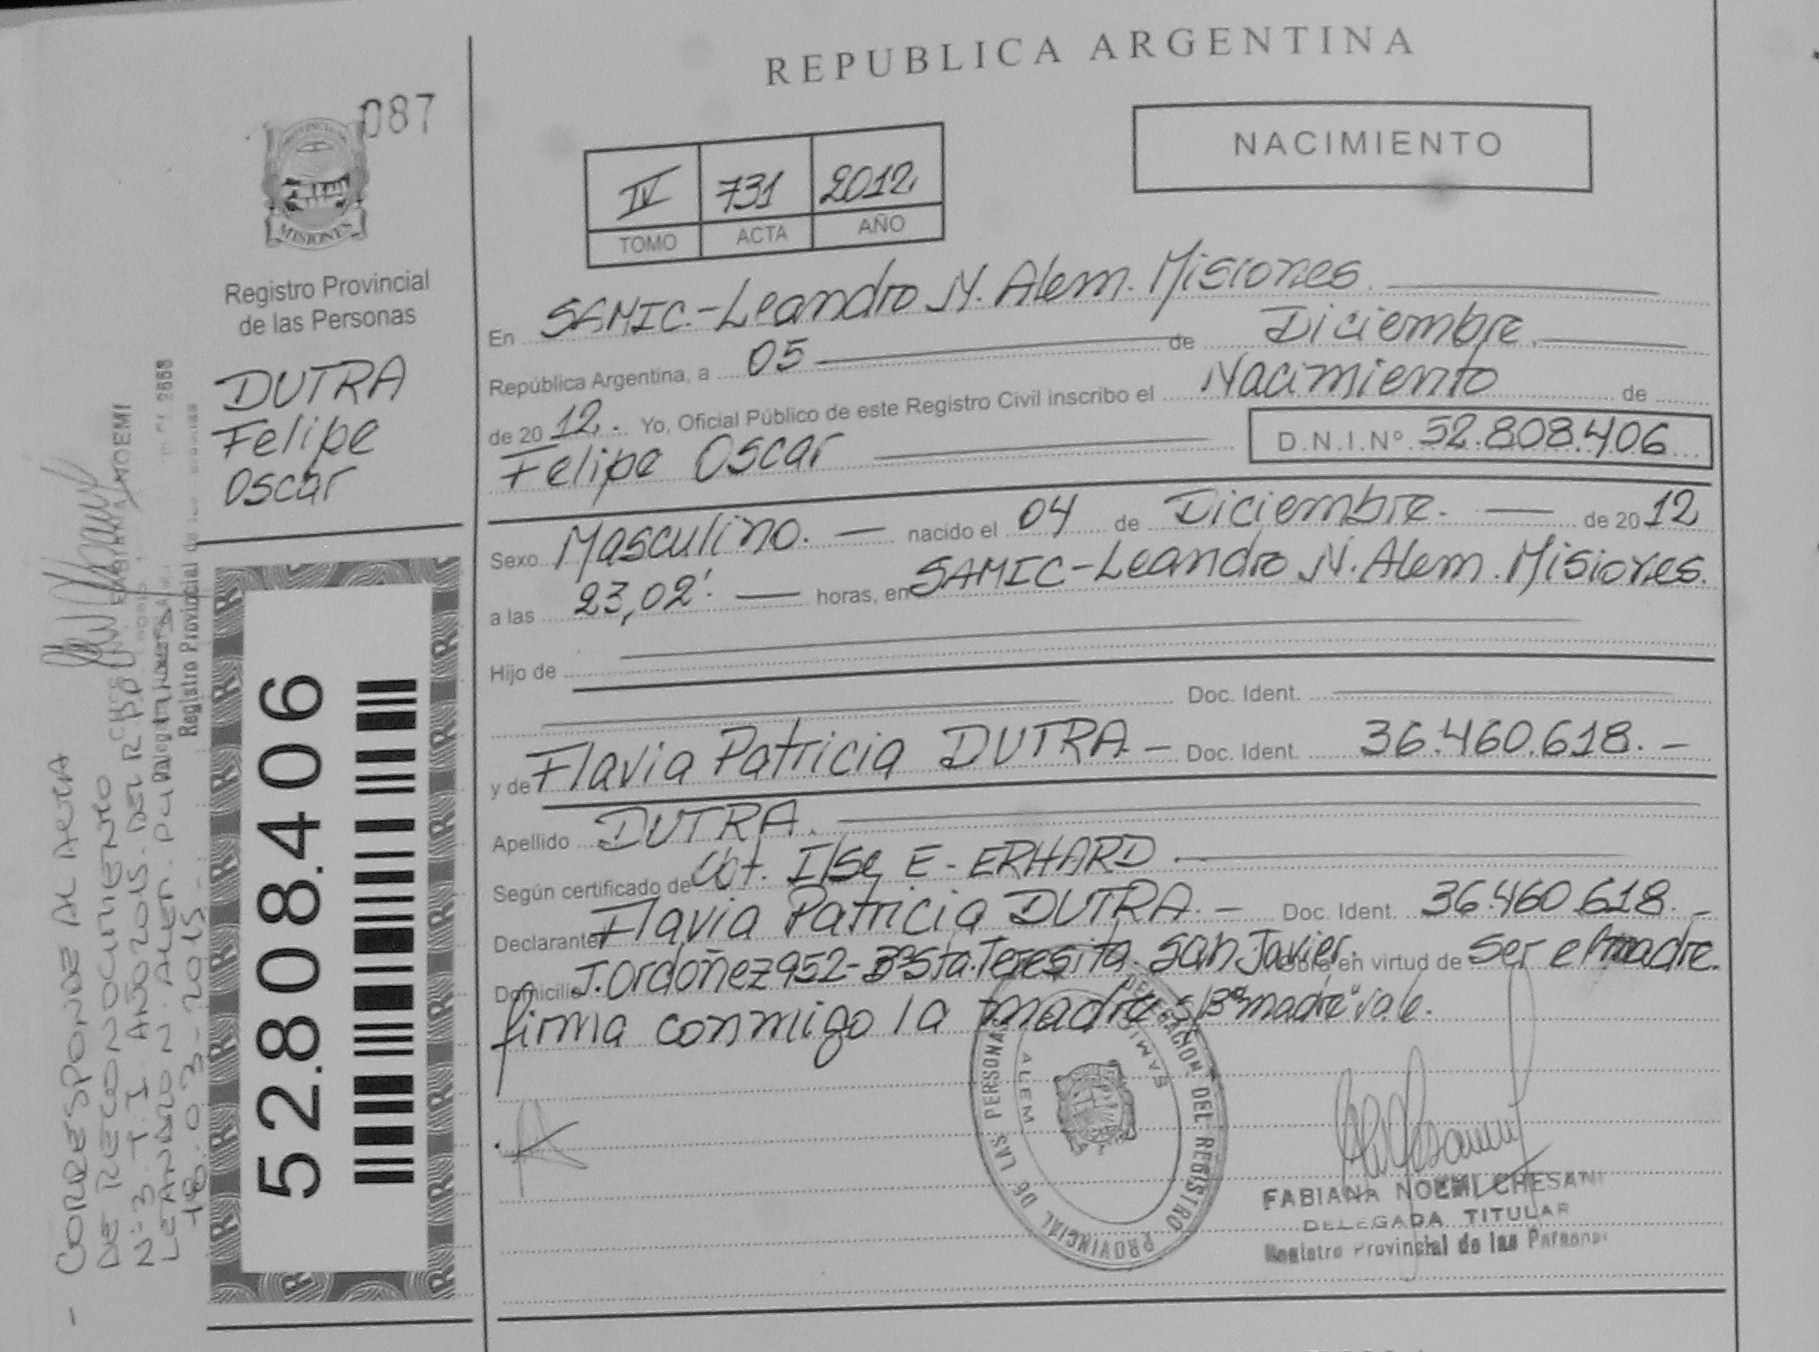 REPUBLICA ARGENTINA
087
NACIMIENTO
IV 731 2012
TOMO ACTA AÑO
MISIONES
Registro Provincial
de las Personas
DUTRA
Felipe
Oscar
52.808.406
En SAMIC.-Leandro N. Alem. Misiones.
República Argentina, a 05 de Diciembre.
de 20 12. Yo, Oficial Público de este Registro Civil inscribo el Nacimiento de
Felipe Oscar D.N.I.Nº 52.808.406
Sexo Masculino. nacido el 04 de Diciembre. de 20 12
a las 23,02'. horas, en SAMIC-Leandro N. Alem. Misiones.
Hijo de
Doc. Ident.
y de Flavia Patricia DUTRA.- Doc. Ident. 36.460.618.-
Apellido DUTRA.
Según certificado de Obt. Ilse E. ERHARD
Declarante Flavia Patricia DUTRA.- Doc. Ident. 36.460.618.-
Domicilio J.Ordoñez 952-Bº Sta.Teresita. San Javier. Obra en virtud de ser el madre.
firma conmigo la madre s/Bº "madre" vale.
DELEGACION DEL REGISTRO PROVINCIAL DE LAS PERSONAS
SAMIC
ALEM
FABIANA NOEMI CHESANI
DELEGADA TITULAR
Registro Provincial de las Personas
- CORRESPONDE AL ACTA
DE RECONOCIMIENTO
Nº 3 T. I AÑO 2015. DEL R.P.P
LEANDRO N. ALEM.
18-03-2015-
Registro Provincial de las